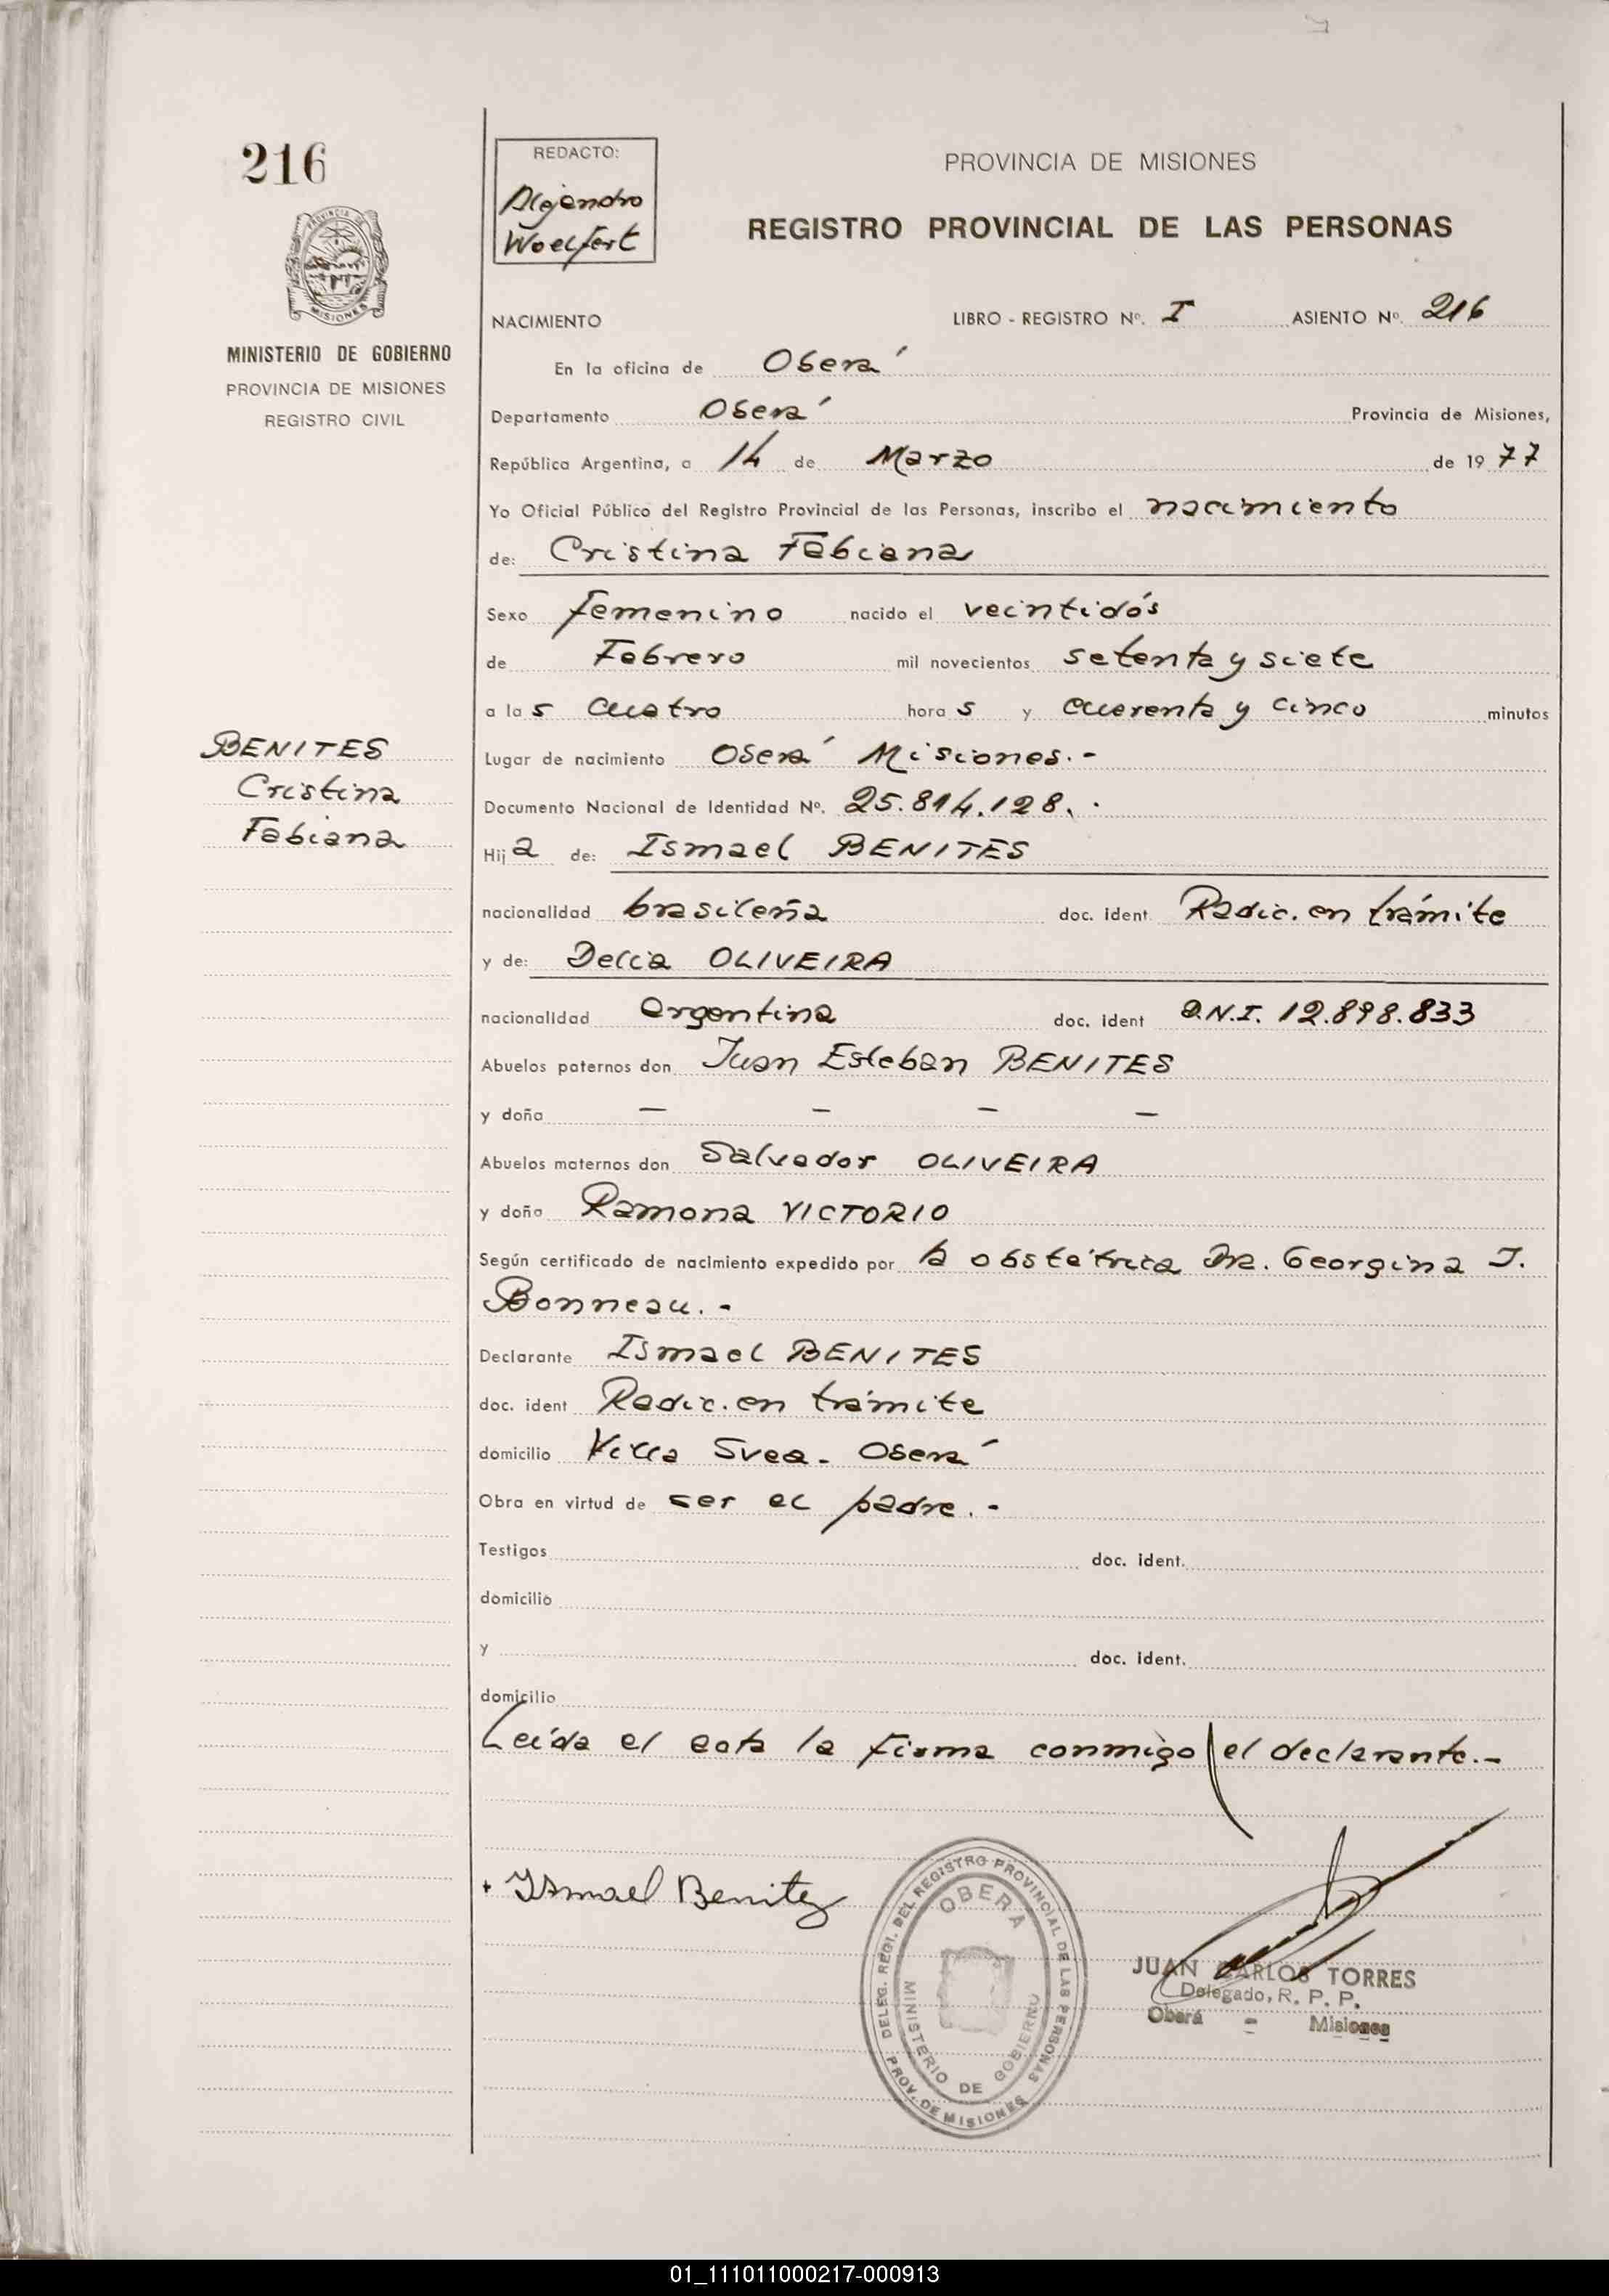 216
PROVINCIA DE MISIONES
MINISTERIO DE GOBIERNO
PROVINCIA DE MISIONES
REGISTRO CIVIL
BENITES
Cristina
Fabiana
REDACTO:
Alejandro
Woelfert
PROVINCIA DE MISIONES
REGISTRO PROVINCIAL DE LAS PERSONAS
NACIMIENTO LIBRO - REGISTRO Nº. I ASIENTO Nº. 216
En la oficina de Oberá
Departamento Oberá Provincia de Misiones,
República Argentina, a 14 de Marzo de 1977
Yo Oficial Público del Registro Provincial de las Personas, inscribo el nacimiento
de: Cristina Fabiana
Sexo femenino nacido el veintidós
de Febrero mil novecientos setenta y siete
a las cuatro horas y cuarenta y cinco minutos
Lugar de nacimiento Oberá Misiones.-
Documento Nacional de Identidad Nº. 25.814.128.
Hija de: Ismael BENITES
nacionalidad brasileña doc. ident. Radic. en trámite
y de: Delia OLIVEIRA
nacionalidad argentina doc. ident D.N.I. 12.898.833
Abuelos paternos don Juan Esteban BENITES
y doña — — — —
Abuelos maternos don Salvador OLIVEIRA
y doña Ramona VICTORIO
Según certificado de nacimiento expedido por la obstétrica Dra. Georgina J.
Bonneau.-
Declarante Ismael BENITES
doc. ident Radic. en trámite
domicilio Villa Svea - Oberá
Obra en virtud de ser el padre.-
Testigos doc. ident.
domicilio
y doc. ident.
domicilio
Leída el acta la firma conmigo el declarante.-
Ismael Benitez
DELEG. REGI. DEL REGISTRO PROVINCIAL DE LAS PERSONAS
OBERA
MINISTERIO DE GOBIERNO
PROV. DE MISIONES
JUAN CARLOS TORRES
Delegado, R. P. P.
Oberá - Misiones
01_111011000217-000913